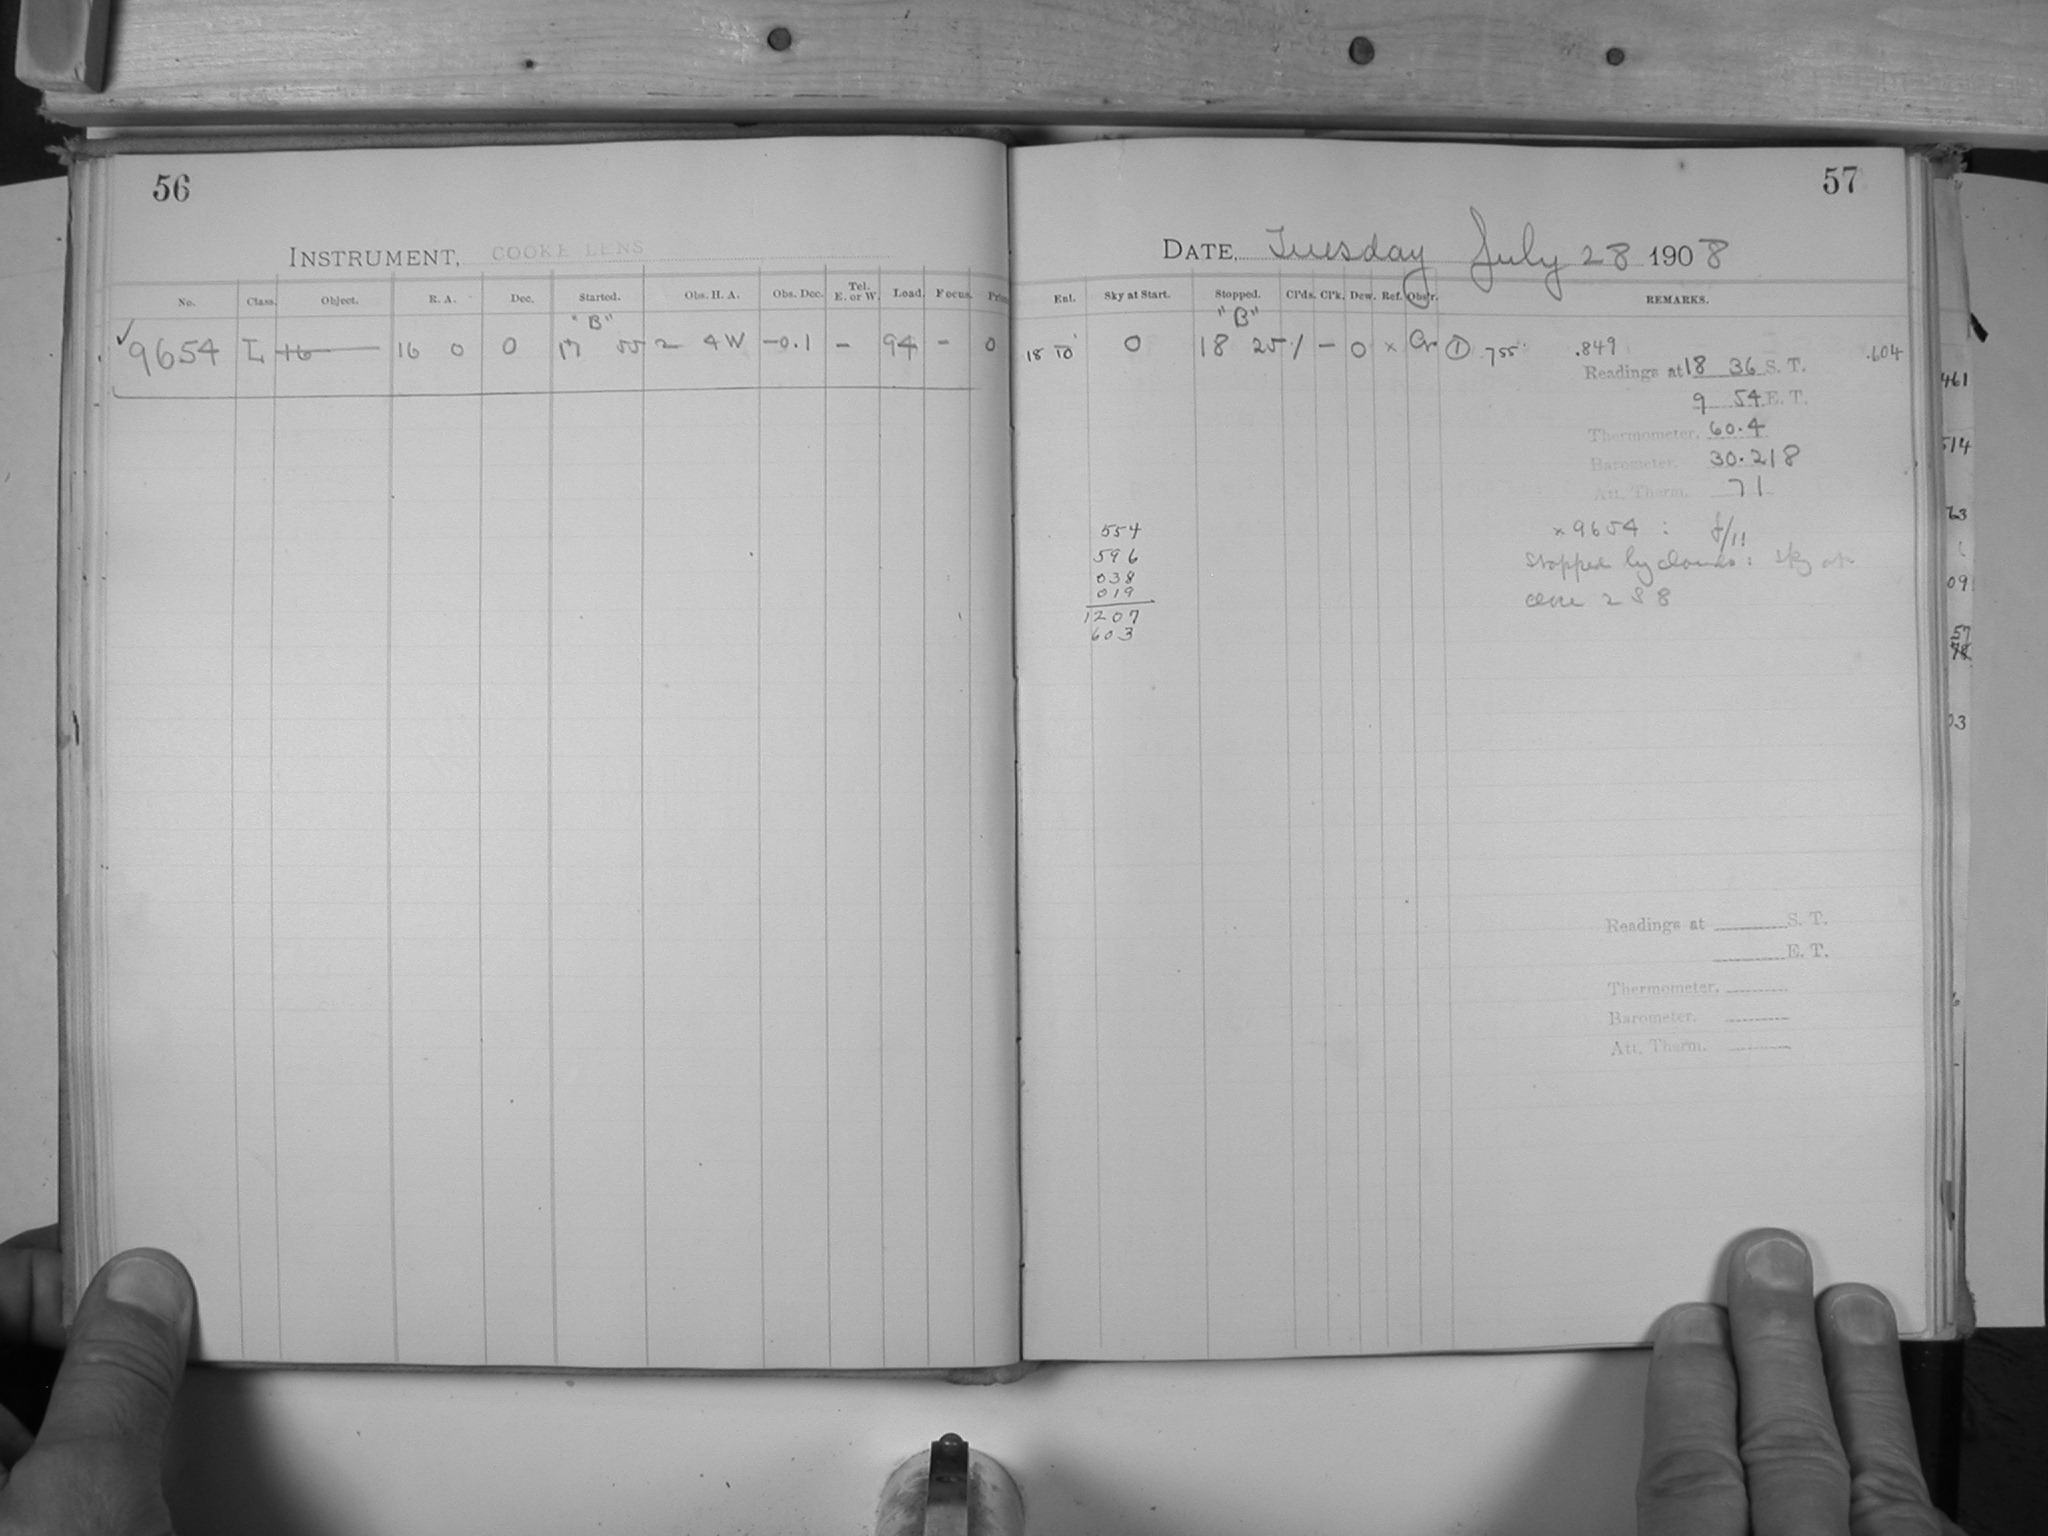 56
INSTRUMENT, COOKE LENS
No. Class. Object. R. A. Dec. Started. Obs. H. A. Obs. Dec. Tel. E. or W. Load. Focus. Prism
"B"
✓ 9654 L 16 16 0 0 17 55 2 4 W -0.1 - 94 - 0
57
DATE, Tuesday July 28 1908
Ent. Sky at Start. Stopped. Cl'ds. Cl'k. Dew. Ref. Obs'r. REMARKS.
"B"
18 10 0 18 25 / - 0 × Cr ① 755 .849 .604
Readings at 18 36 S. T.
9 54 E. T.
Thermometer, 60.4
Barometer. 30.218
Att. Therm. 71
× 9654 : f/11
Stopped by clouds: sky
2 S 8
554
596
038
019
1207
603
Readings at S. T.
E. T.
Thermometer,
Barometer.
Att. Therm.
461
514
63
09
57
78
03